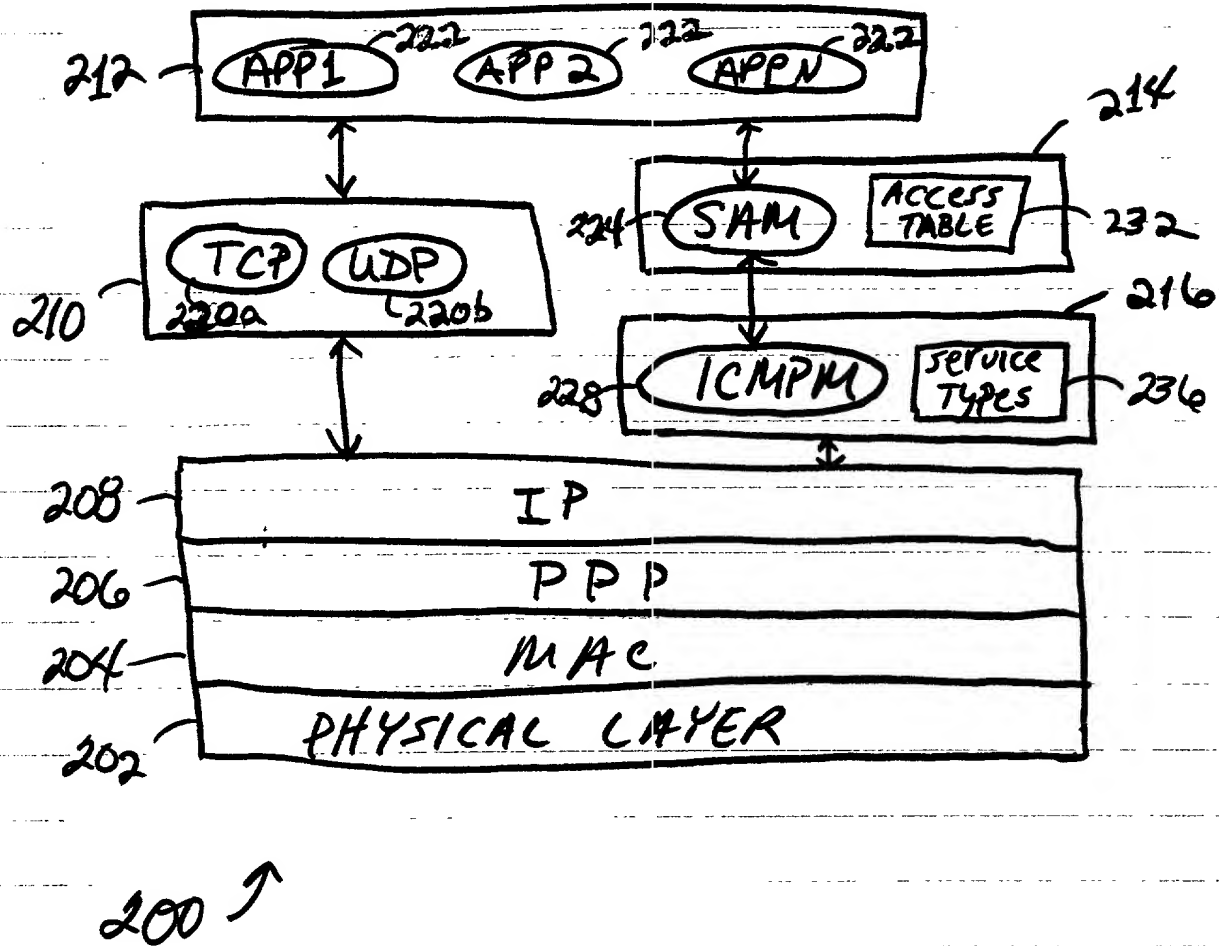 222 222 222
212 APP1 APP2 APPN
214
224 SAM ACCESS
TABLE 232
TCP UDP
210 220a 220b
216
228 ICMPM service
Types 236
208 IP
206 PPP
204 MAC
202 PHYSICAL LAYER
200